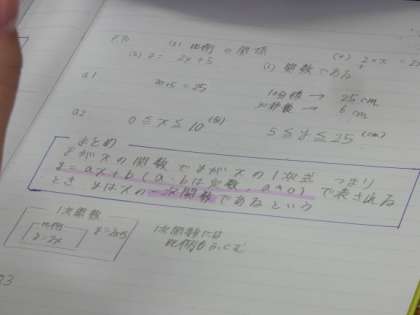 (1) 比例 の 関係
(2) y = 2x+5
(3) 関数である
a1
2x+5=25
10分後 → 25 cm
→ 6 cm
a2
0 ≦ x ≦ 10 (分)
5 ≦ y ≦ 25 (cm)
まとめ
yがxの関数でyがxの1次式 つまり
y=ax+b (a・bは定数, a≠0) で表される
とき yはxの一次関数であるという
1次関数
比例
y=2x
y=2x+5
1次関数には
比例もふくむ